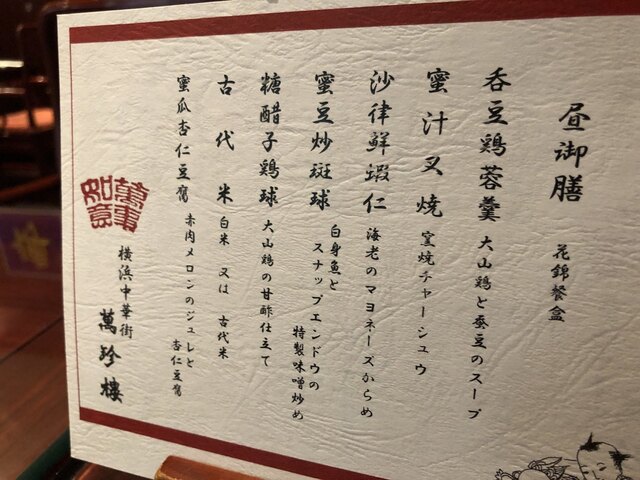 昼御膳
花錦餐盒
呑豆鶏蓉羹 大山鶏と蚕豆のスープ
蜜汁叉焼 窯焼チャーシュウ
沙律鮮蝦仁 海老のマヨネーズからめ
蜜豆炒斑球 白身魚と
スナップエンドウの
特製味噌炒め
糖醋子鶏球 大山鶏の甘酢仕立て
古代米 白米 又は 古代米
蜜瓜杏仁豆腐 赤肉メロンのジュレと
杏仁豆腐
萬事
如意
横浜中華街
萬珍樓